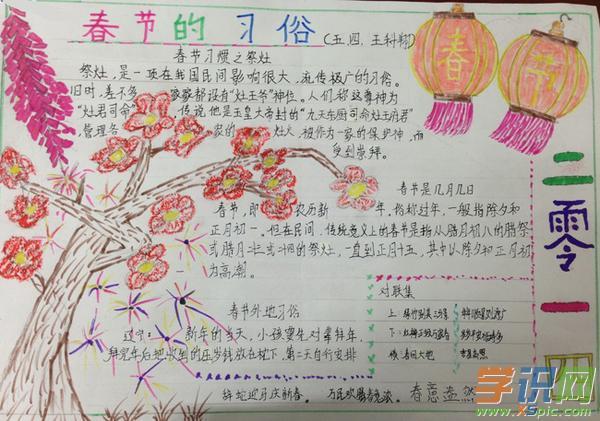 春节的习俗
(五.四.王科翔)
春节习惯之祭灶
祭灶,是一项在我国民间影响很大、流传极广的习俗。
旧时,差不多家家都设有“灶王爷”神位。人们称这尊神为
“灶君司命”,传说他是玉皇大帝封的“九天东厨司命灶王府君”
,管理各家的灶火,被作为一家的保护神,而
受到崇拜。
春节是几月几日
春节,即农历新年,俗称过年,一般指除夕和
正月初一。但在民间,传统意义上的春节是指从腊月初八的腊祭
或腊月廿三或廿四的祭灶,一直到正月十五,其中以除夕和正月初一
为高潮。
春节外地习俗
辽宁:新年的当天,小孩要先对辈拜年,
拜完年后把收到的压岁钱放在枕下,第二天自行安排
对联集
上:
下:
横:春回大地
辞蛇迎马庆新春。
春意盎然
春节
二零一四
学识网
www.xspic.com